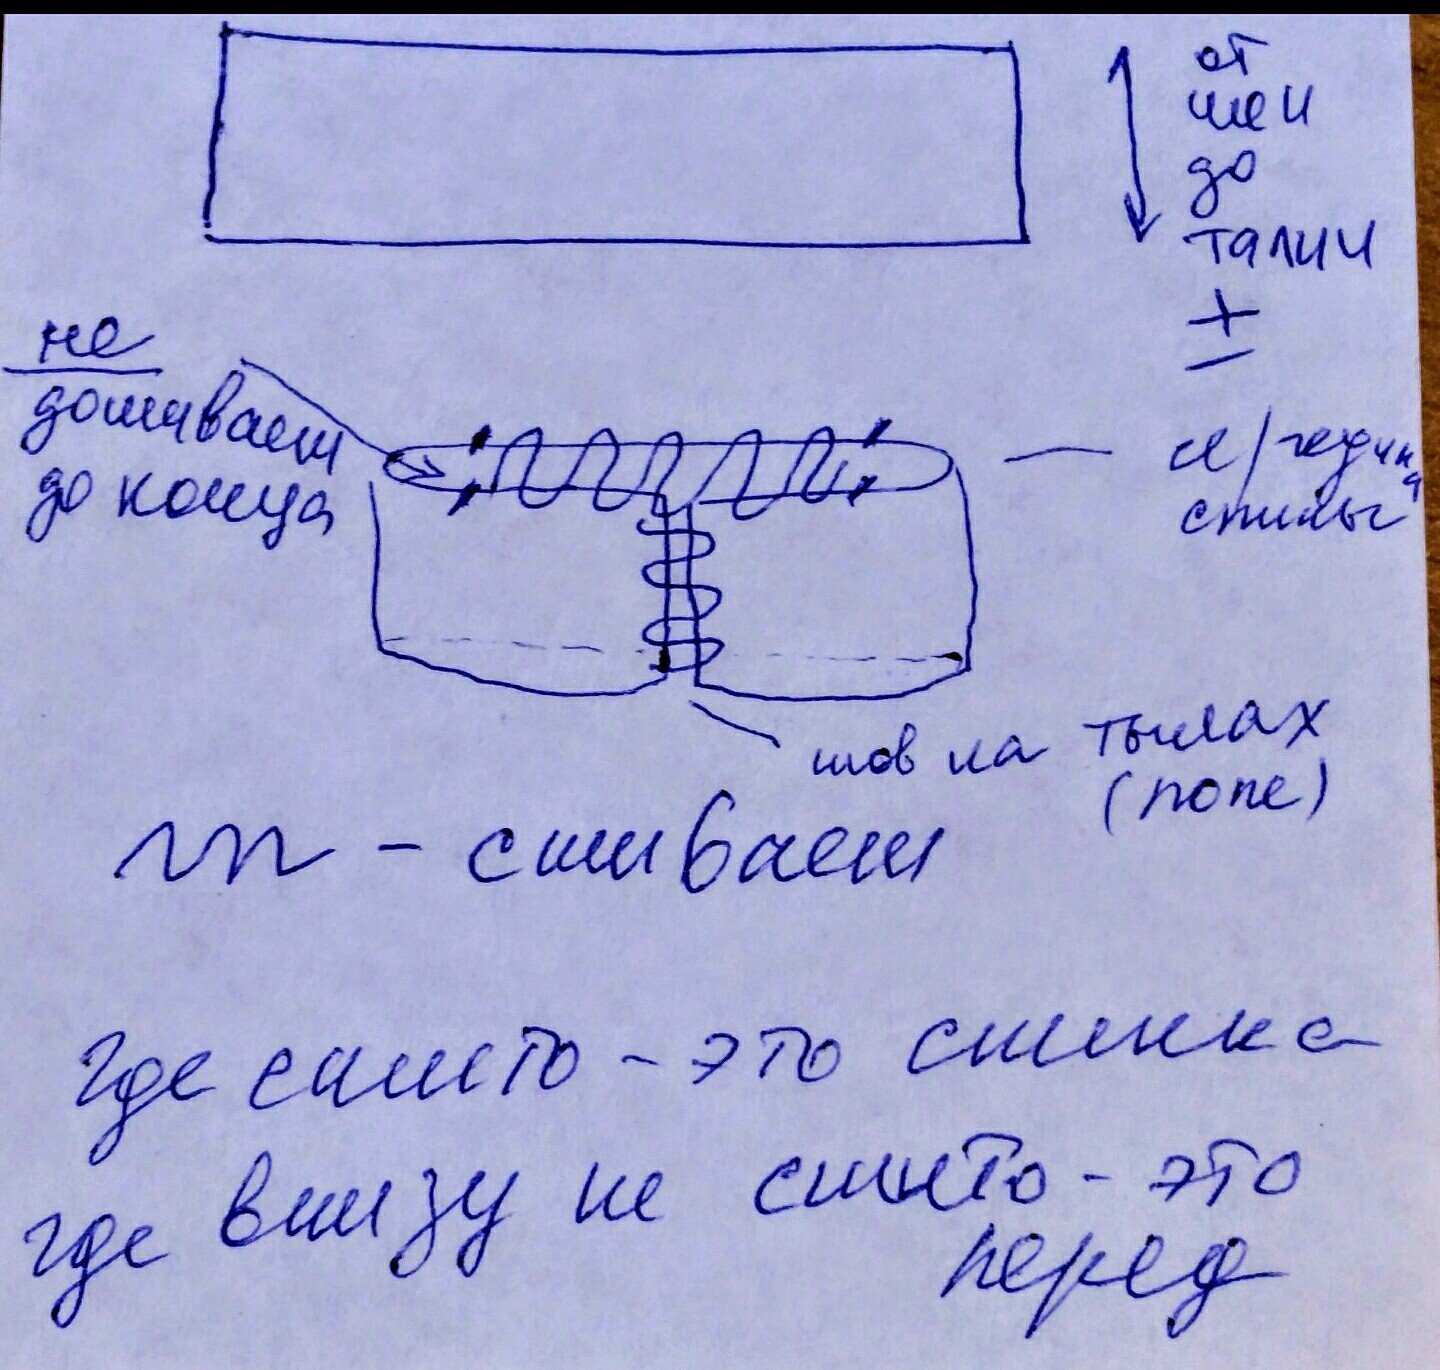 от
шеи
до
талии
±
не
дошиваем
до конца
с/редина
спины
шов на тылах
(попе)
– сшиваем
где сшито – это спинка
где внизу не сшито – это
перед